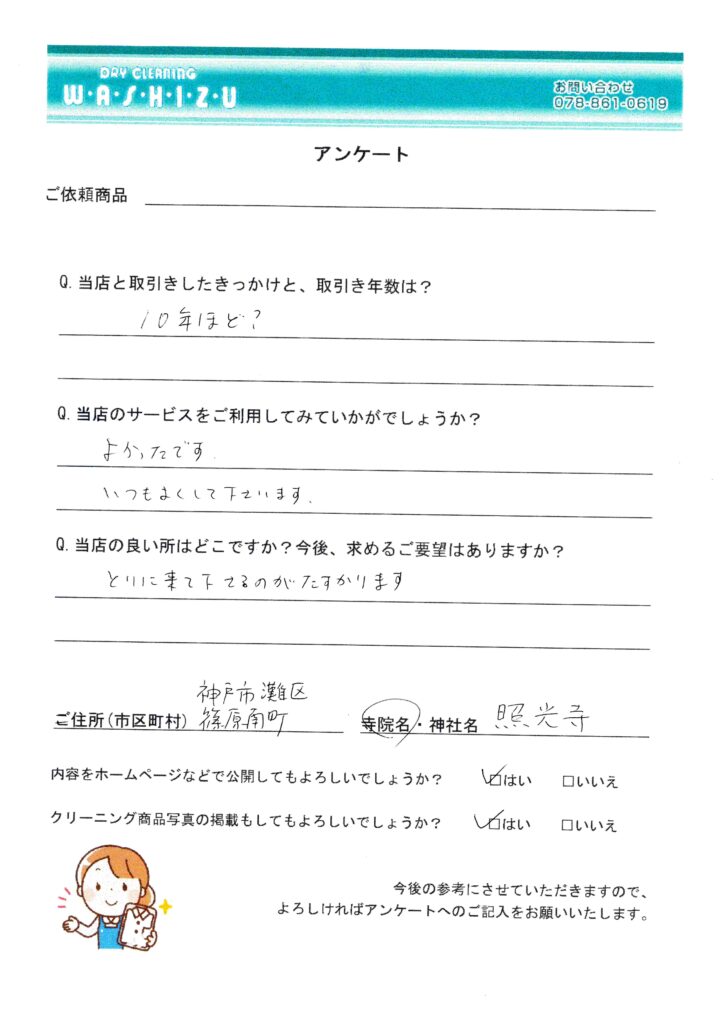 DRY CLEANING
W・A・S・H・I・Z・U
お問い合わせ
078-861-0619
アンケート
ご依頼商品
Q. 当店と取引きしたきっかけと、取引き年数は？
10年ほど？
Q. 当店のサービスをご利用してみていかがでしょうか？
よかったです.
いつもよくして下さいます.
Q. 当店の良い所はどこですか？今後、求めるご要望はありますか？
とりに来て下さるのがたすかります
神戸市灘区
ご住所(市区町村) 篠原南町 寺院名・神社名 照光寺
内容をホームページなどで公開してもよろしいでしょうか？ ☑はい □いいえ
クリーニング商品写真の掲載もしてもよろしいでしょうか？ ☑はい □いいえ
今後の参考にさせていただきますので、
よろしければアンケートへのご記入をお願いいたします。